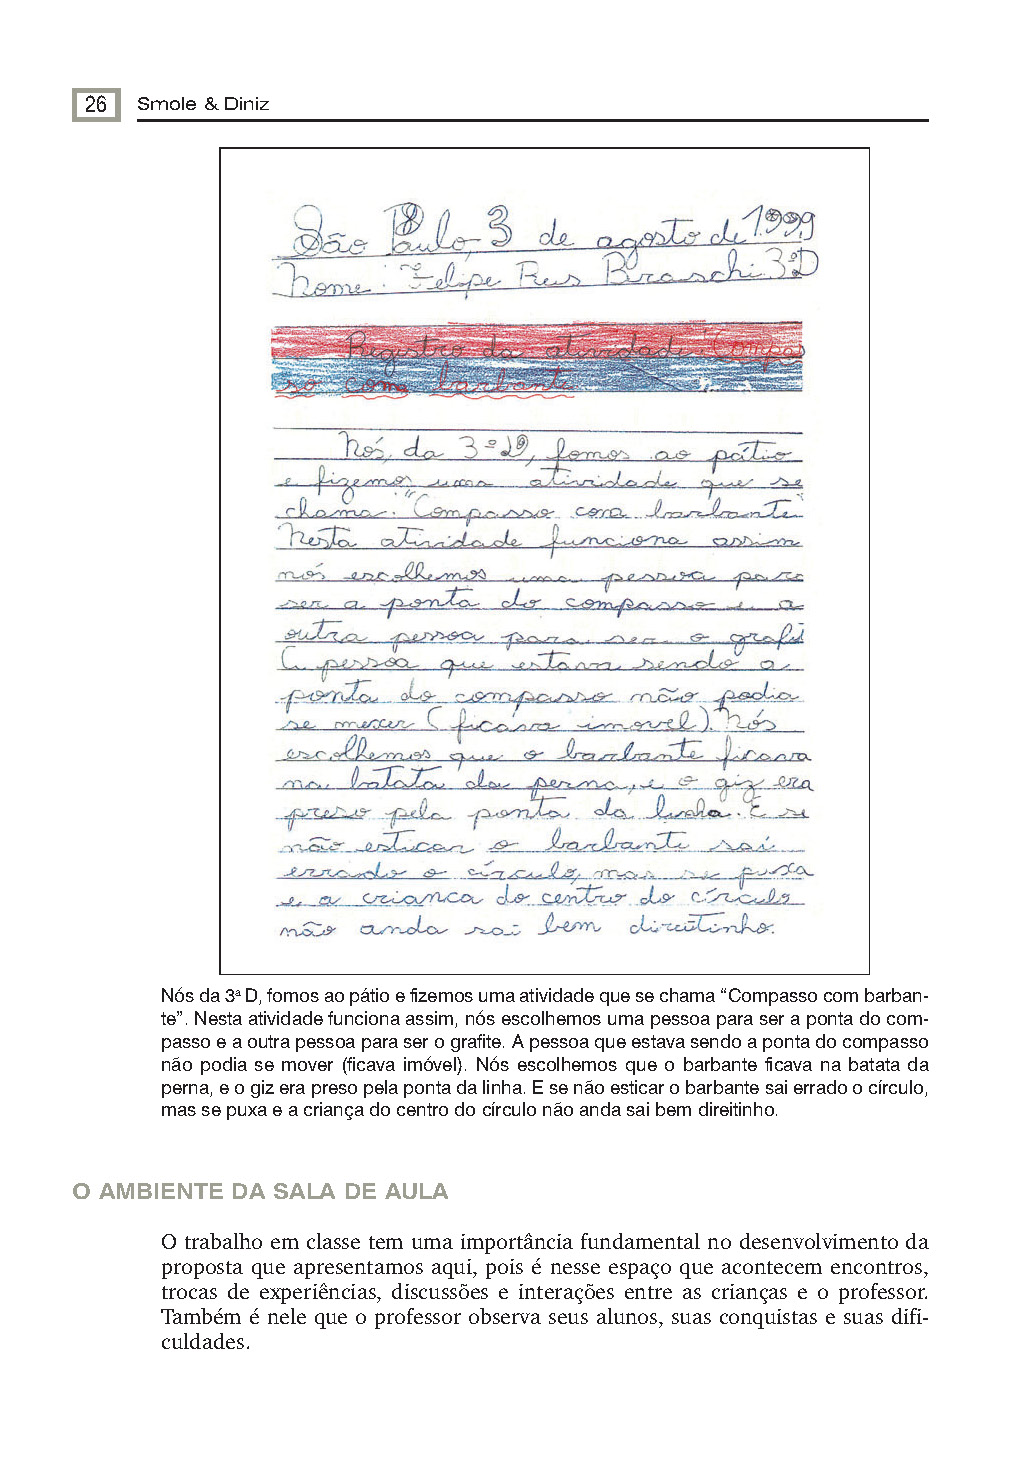 26 Smole & Diniz
São Paulo, 3 de agosto de 1.999
Nome: Felipe Reis Braschi 3ªD
Registro da atividade: Compas
so come barbante
Nós, da 3ªD, fomos ao pátio
e fizemos uma atividade que se
chama: "Compasso com barbante"
Nesta atividade funciona assim
nós escolhemos uma pessoa para
ser a ponta do compasso e a
outra pessoa para ser o grafit
A pessoa que estava sendo a
ponta do compasso não podia
se mexer (ficava imovel). Nós
escolhemos que o barbante ficava
na batata da perna, e o giz era
preso pela ponta da linha. E se
não esticar o barbante sai
errado o círculo, mas se puxa
e a crianca do centro do círculo
não anda sai bem direitinho.
Nós da 3ª D, fomos ao pátio e fizemos uma atividade que se chama “Compasso com barban-
te”. Nesta atividade funciona assim, nós escolhemos uma pessoa para ser a ponta do com-
passo e a outra pessoa para ser o grafite. A pessoa que estava sendo a ponta do compasso
não podia se mover (ficava imóvel). Nós escolhemos que o barbante ficava na batata da
perna, e o giz era preso pela ponta da linha. E se não esticar o barbante sai errado o círculo,
mas se puxa e a criança do centro do círculo não anda sai bem direitinho.
O AMBIENTE DA SALA DE AULA
O trabalho em classe tem uma importância fundamental no desenvolvimento da
proposta que apresentamos aqui, pois é nesse espaço que acontecem encontros,
trocas de experiências, discussões e interações entre as crianças e o professor.
Também é nele que o professor observa seus alunos, suas conquistas e suas difi-
culdades.